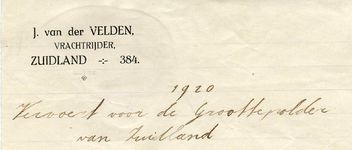 J. van der VELDEN,
VRACHTRIJDER,
ZUIDLAND -:- 384.
1920
Vervoert voor de Groottepolder
van Zuidland